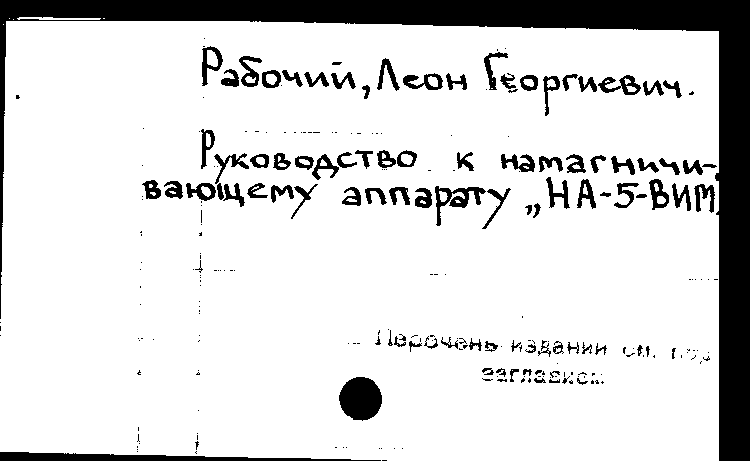 Рабочий, Леон Георгиевич.
Руководство к намагничи-
вающему аппарату „НА-5-ВИМ
Перечень изданий см. под
заглавием